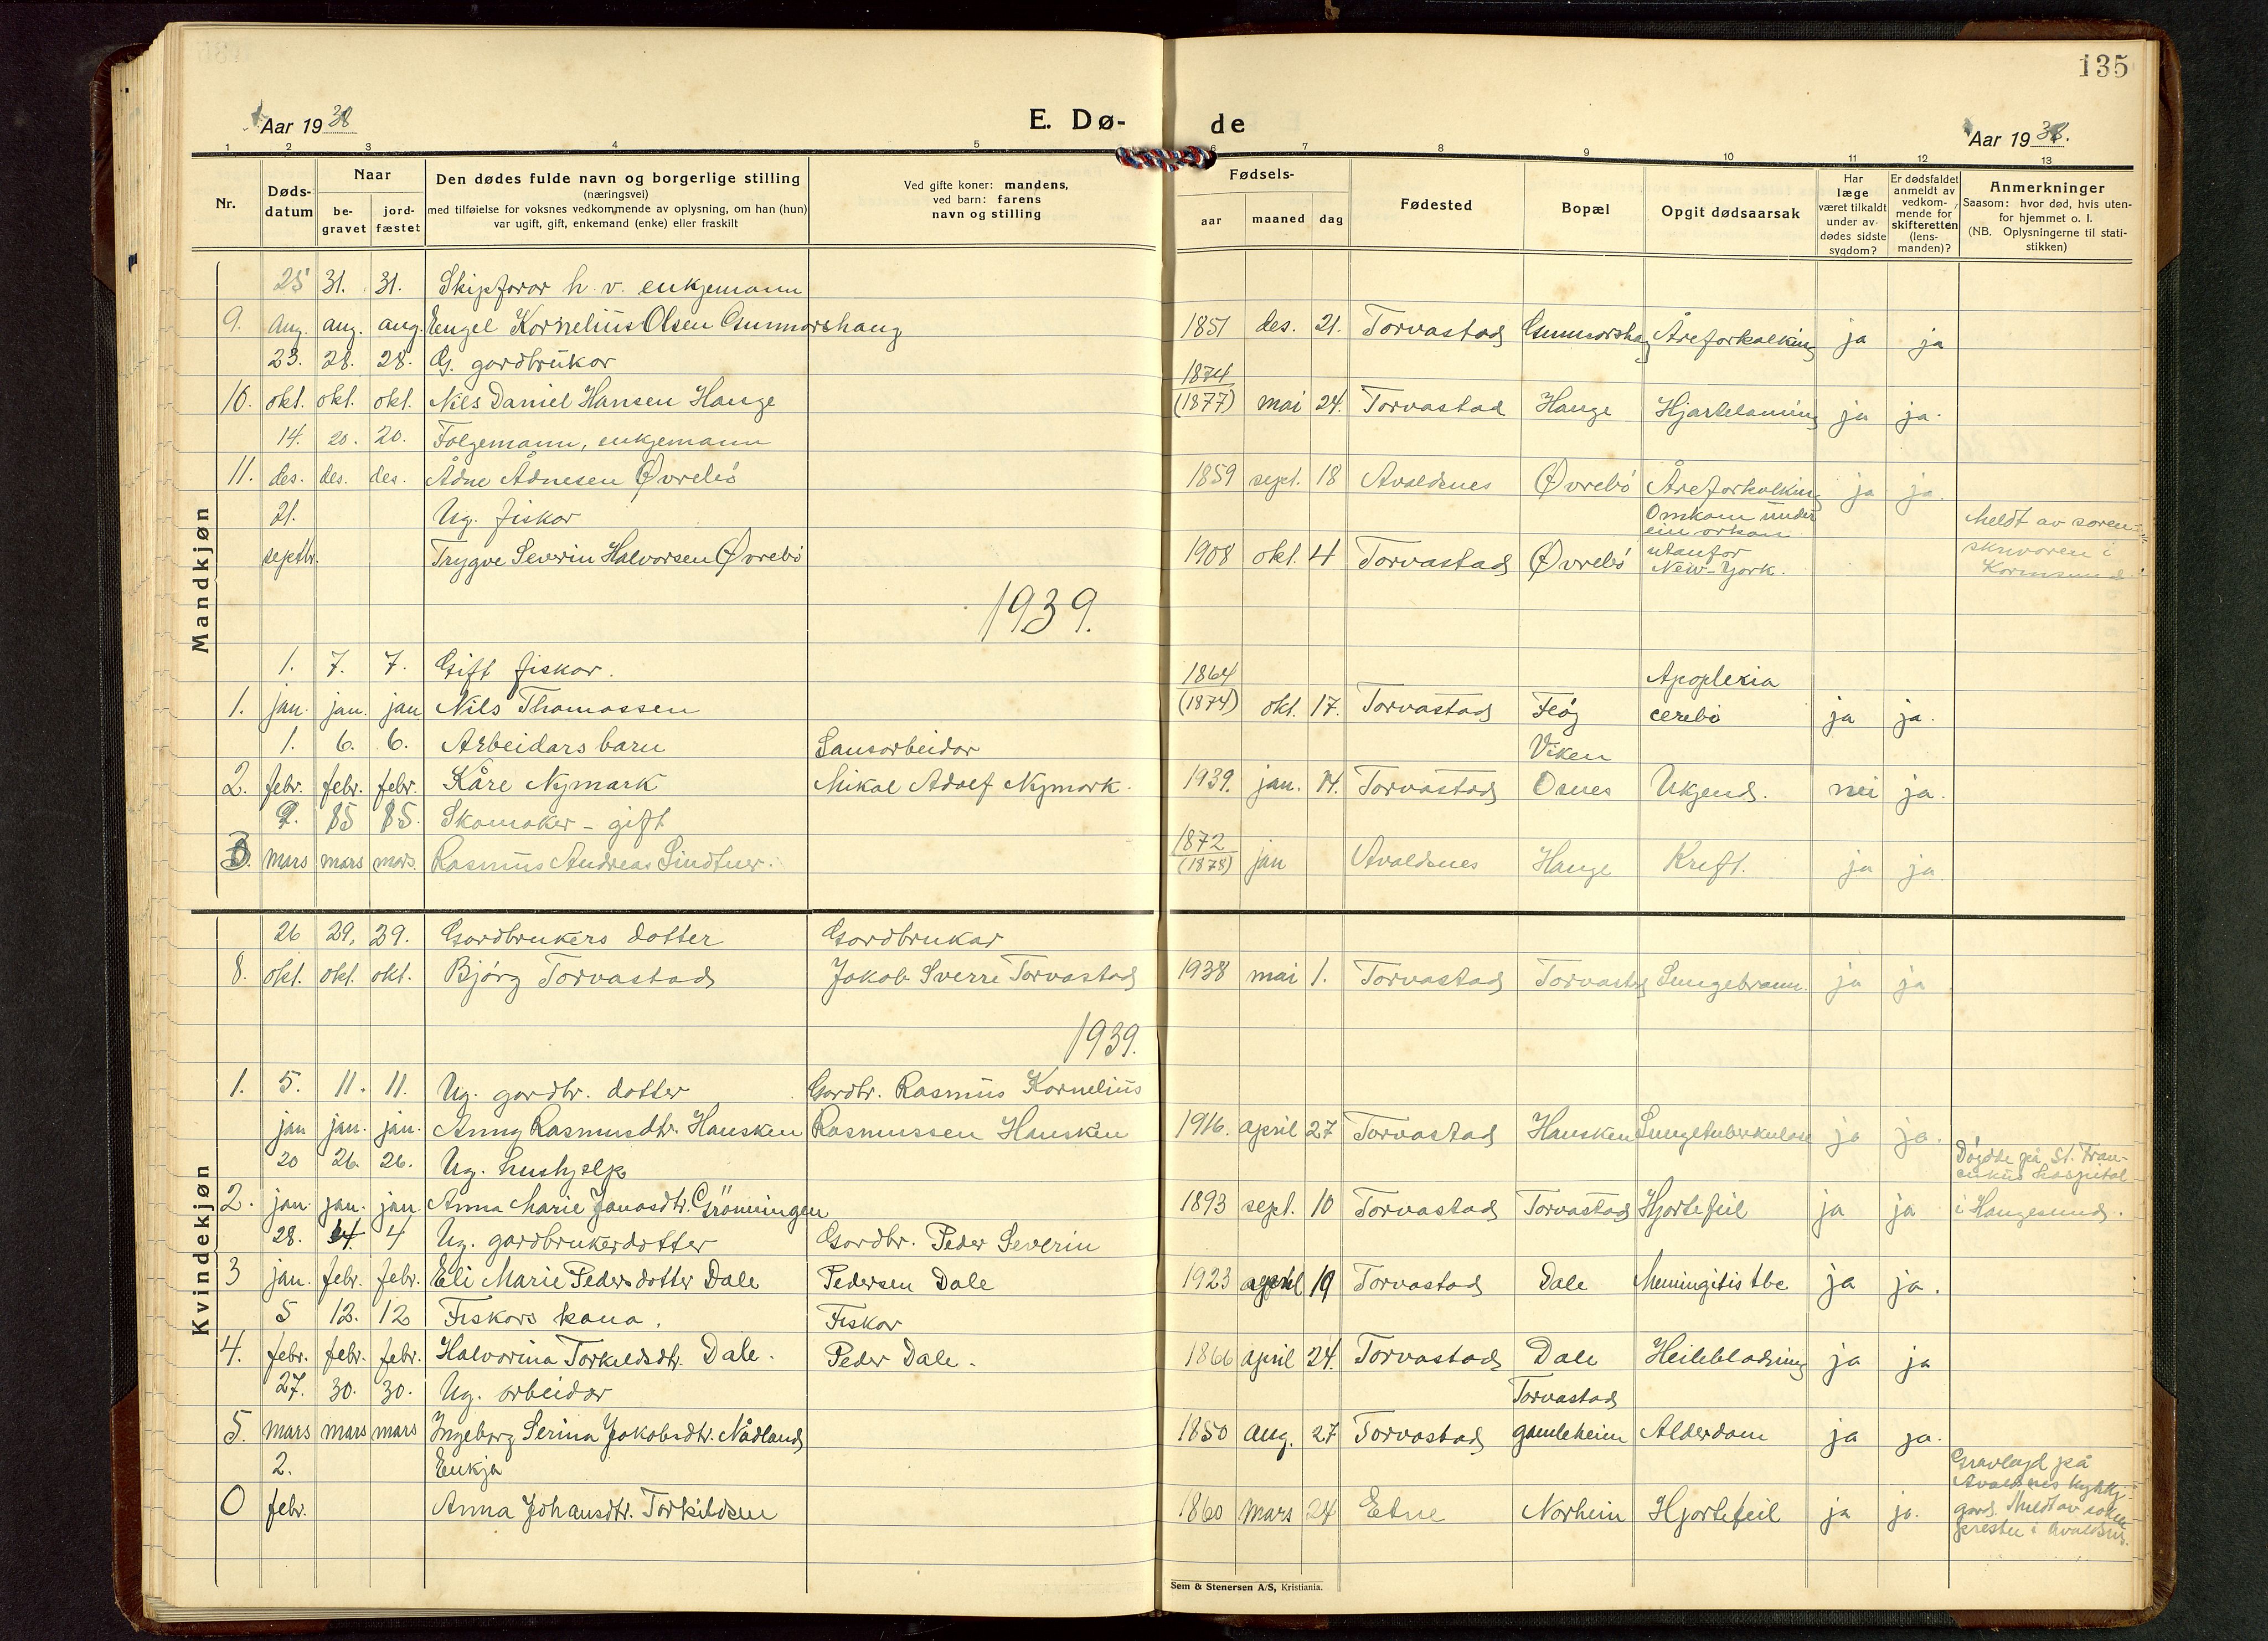 135
Aar 1938
E. Dø-
de
Aar 1938.
1 2 3 4 5 6 7 8 9 10 11 12 13
Nr.
Døds-
datum
Naar
be-
gravet
jord-
fæstet
Den dødes fulde navn og borgerlige stilling
(næringsvei)
med tilføielse for voksnes vedkommende av oplysning, om han (hun)
var ugift, gift, enkemand (enke) eller fraskilt
Ved gifte koner: mandens,
ved barn: farens
navn og stilling
Fødsels-
aar maaned dag
Fødested
Bopæl
Opgit dødsaarsak
Har
læge
været tilkaldt
under av-
dødes sidste
sygdom?
Er dødsfaldet
anmeldt av
vedkom-
mende for
skifteretten
(lens-
manden)?
Anmerkninger
Saasom: hvor død, hvis uten-
for hjemmet o. l.
(NB. Oplysningerne til stati-
stikken)
Mandkjøn
25 31. 31. Skipforar h. v. enkjemann
9. aug. aug. aug. Engel Kornelius Olsen Gunnarshaug 1851 des. 21. Torvastad Gunnarshaug Åreforkalking ja ja
23. 28. 28. G. gardbrukar
10. okt. okt. okt. Nils Daniel Hansen Hauge 1874 (1877) mai 24. Torvastad Hauge Hjartelaming ja ja.
14. 20. 20. Folgemann, enkjemann
11. des. des. des. Ådne Ådnesen Øvrebö 1859 sept. 18 Avaldsnes Øvrebö Åreforkalking ja ja.
21. Ug. fiskar
septbr. Trygve Severin Halvorsen Øvrebö 1908 okt. 4 Torvastad Øvrebö
Omkom under
ein orkan
utanfor
New-York.
Meldt av soren-
skrivaren i
Karmsund.
1939.
1. 7. 7. Gift fiskar.
1. jan. jan. jan Nils Thomassen 1864 (1874) okt. 17. Torvastad Feöy Apoplexia cerebi ja ja.
1. 6. 6. Arbeidars barn Lausarbeidar Viken
2. febr. febr. febr. Kåre Nymark Mikal Adolf Nymark. 1939. jan. 14. Torvastad Osnes Ukjend. nei ja.
9. 15 15. Skomaker - gift
3. mars mars mars. Rasmus Andreas Sindtner. 1872 (1878) jan Avaldsnes Hauge Kreft. ja ja.
Kvindekjøn
26 29. 29. Gardbrukers dotter Gardbrukar
8. okt. okt. okt. Björg Torvastad Jakob Sverre Torvastad 1938 mai 1. Torvastad Torvastad Lungebrann. ja ja
1939.
1. 5. 11. 11. Ug. gardbr. dotter Gardbr. Rasmus Kornelius
jan jan. jan. Anny Rasmusdtr. Hausken Rasmussen Hausken 1916. april 27 Torvastad Hausken Lungetuberkulose ja ja.
20 26. 26. Ug. hushjelp
2. jan. jan. jan. Anna Marie Jonasdtr. Grönningen 1893 sept. 10 Torvastad Torvastad Hjartefeil ja ja
Döydde på St. Fran-
ciskus hospital
i Haugesund.
28. 4 4 Ug. gardbrukerdotter Gardbr. Peder Severin
3 jan. febr. febr. Eli Marie Pedersdotter Dale Pedersen Dale 1923 april 19 Torvastad Dale Meningitis tbc ja ja.
5 12. 12 Fiskars kona. Fiskar
4. febr. febr. febr. Halvorina Torkildsdtr. Dale. Peder Dale. 1866 april 24. Torvastad Dale Heileblødning ja ja
27. 30. 30. Ug. arbeidar Torvastad
5. mars mars mars Ingeborg Serina Jakobsdtr. Nådland 1850 aug. 27 Torvastad gamleheim Alderdom ja ja.
2. Enkja
0 febr. Anna Johansdtr. Torkildsen 1860 mars 24 Etne Norheim Hjartefeil ja ja.
Gravlagd på
Avaldsnes kyrkje-
gard. Meldt av sokne-
presten i Avaldsnes.
Sem & Stenersen A/S, Kristiania.